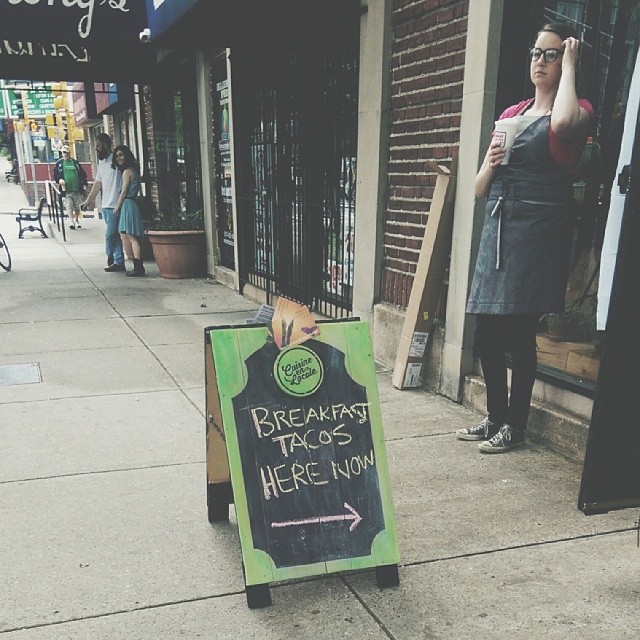 Cuisine
en
Locale
BREAKFAST
TACOS
HERE NOW